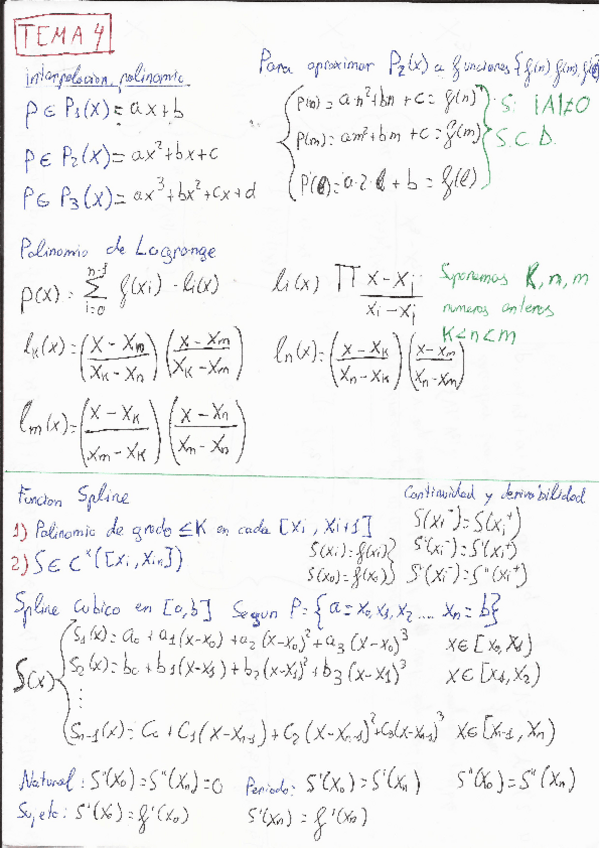 TEMA 4
Interpolacion polinomic
Para aproximar P₂(x) a funciones {f(n) f(m), f'(l)}
P ∈ P₁(x) = ax+b
P ∈ P₂(x) = ax²+bx+c
P ∈ P₃(x) = ax³+bx²+cx+d
P(n) = a·n²+bn+c = f(n)
P(m) = am²+bm+c = f(m)
P'(l) = a·2·l+b = f(l)
Si |A|≠0
S.C.D.
Polinomio de Lagrange
P(x) = Σ_{i=0}^{n-1} f(xi)·li(x)
li(x) ∏ (x-xj)/(xi-xj)
Suponemos K, n, m
numeros enteros
K<n<m
lK(x) = ((x-xn)/(xK-xn)) ((x-xm)/(xK-xm))
ln(x) = ((x-xK)/(xn-xK)) ((x-xm)/(xn-xm))
lm(x) = ((x-xK)/(xm-xK)) ((x-xn)/(xm-xn))
Funcion Spline
Continuidad y derivabilidad
1) Polinomio de grado ≤K en cada [xi, xi+1]
2) S ∈ Cᴷ([xi, xin])
S(xi)=f(xi)
S(x0)=f(x0)
S(xi⁻)=S(xi⁺)
S'(xi⁻)=S'(xi⁺)
S''(xi⁻)=S''(xi⁺)
Spline cubico en [a,b] Segun P={a=x0,x1,x2....xn=b}
S(x)
S1(x)=a0+a1(x-x0)+a2(x-x0)²+a3(x-x0)³ x∈[x0,x1)
S2(x)=b0+b1(x-x1)+b2(x-x1)²+b3(x-x1)³ x∈[x1,x2)
⋮
Sn-1(x)=C0+C1(x-xn-1)+C2(x-xn-1)²+C3(x-xn-1)³ x∈[xn-1,xn)
Natural: S''(x0)=S''(xn)=0 Periodo: S'(x0)=S'(xn) S''(x0)=S''(xn)
Sujeto: S'(x0)=f'(x0) S'(xn)=f'(xn)